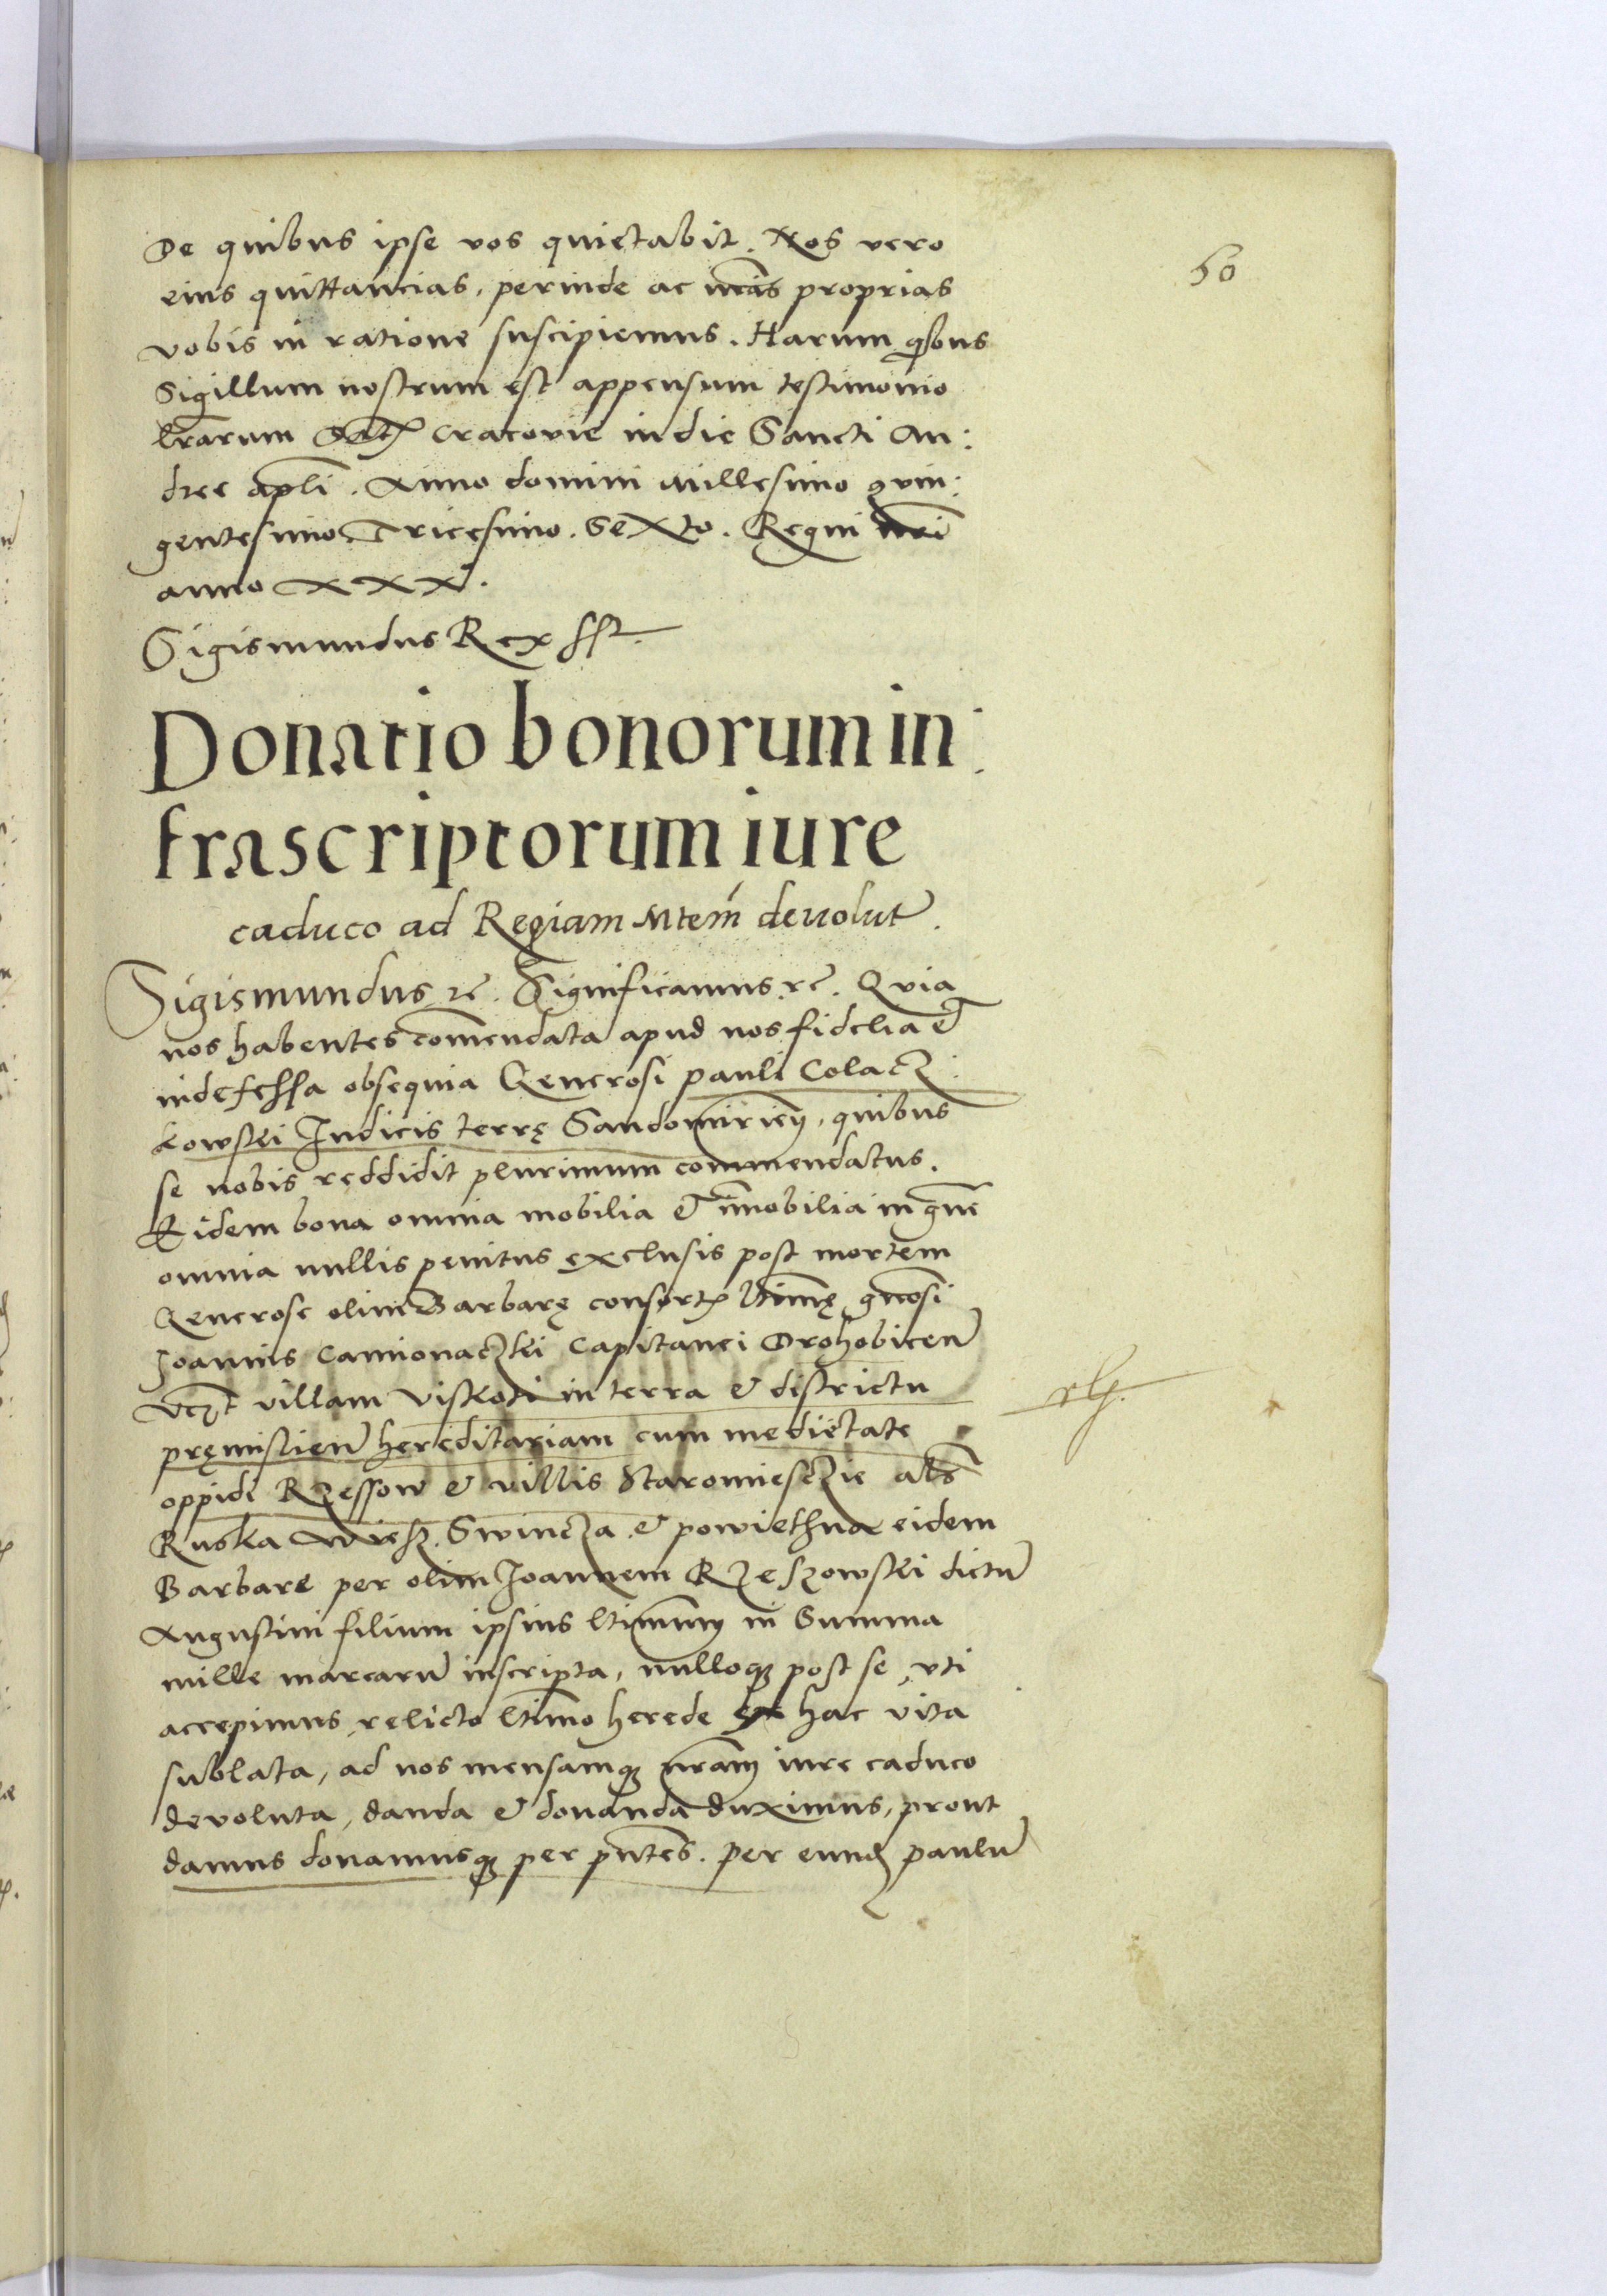 50
De quibus ipse vos quietabit. Nos vero
eius quittancias, perinde ac nr̃as proprias
vobis in ratione suscipiemus. Harum qbus
Sigillum nostrum est appensum testimonio
lr̃arum Dat Cracovie in die Sancti An:
dree apli. Anno domini Millesimo quin:
gentesimo Tricesimo. Sexto. Regni nr̃i
anno XXX.
Sigismundus Rex sst.
Donatio bonorum in:
frascriptorum iure
caduco ad Regiam Mtem devolut.
Sigismundus rc̃. Significamus rc̃. Quia
nos habentes com̃endata apud nos fidelia et
indefessa obsequia Generosi Pauli Colacz:
kowski Iudicis terrę Sandomirien, quibus
se nobis reddidit plurimum commendatus.
Eidem bona omnia mobilia et im̃obilia in gn̄e
omnia nullis penitus exclusis post mortem
Generose olim Barbarę consort ltim̃ę gnosi
Joannis Camionaczki Capitanei Drohobicen
vcȝt villam Viskoti in terra et districtu
pręmislien hereditariam cum medietate
oppidi Rzessow et villis Staromiesczie als̃
Ruska Wiesz. Swincza et powiethna eidem
Barbare per olim Joannem Rzeszowski dictu
Augustini filium ipsius ltimum in Summa
mille marcaru inscripta, nulloqȝ post se, uti
accepimus, relicto ltim̃o herede ex hac vita
sublata, ad nos mensamqȝ nr̃am iure caduco
devoluta, danda et donanda duximus, prout
damus donamusqȝ per pñtes. per eund paulu